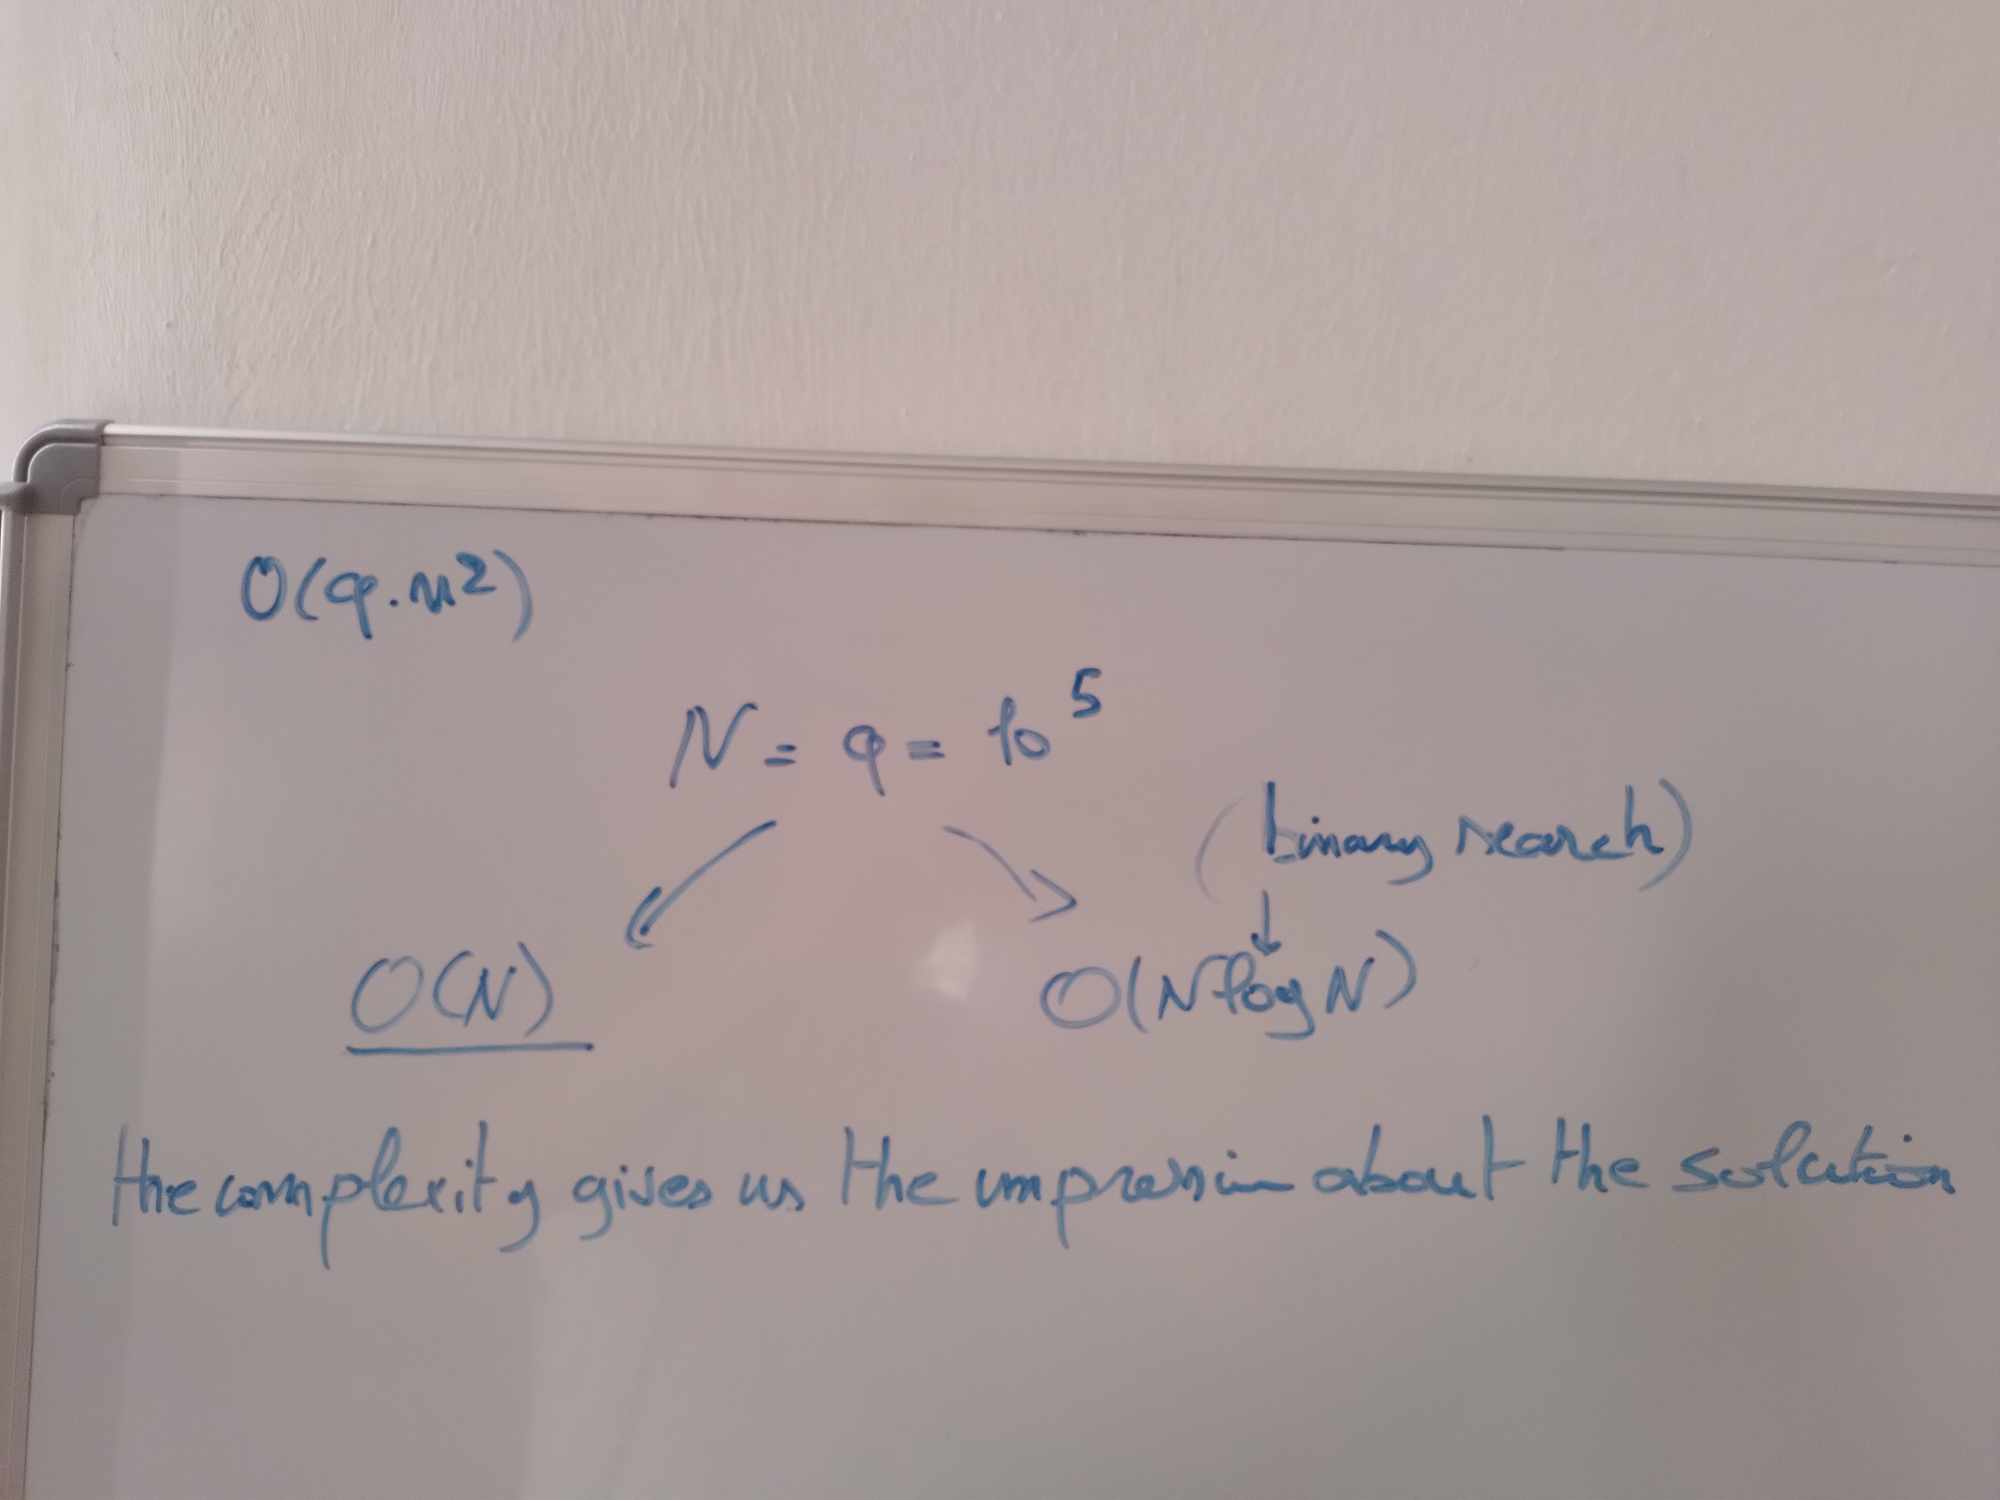 O(q.n²)
N = q = 10⁵
(binary search)
O(N)
O(N log N)
the complexity gives us the impression about the solution